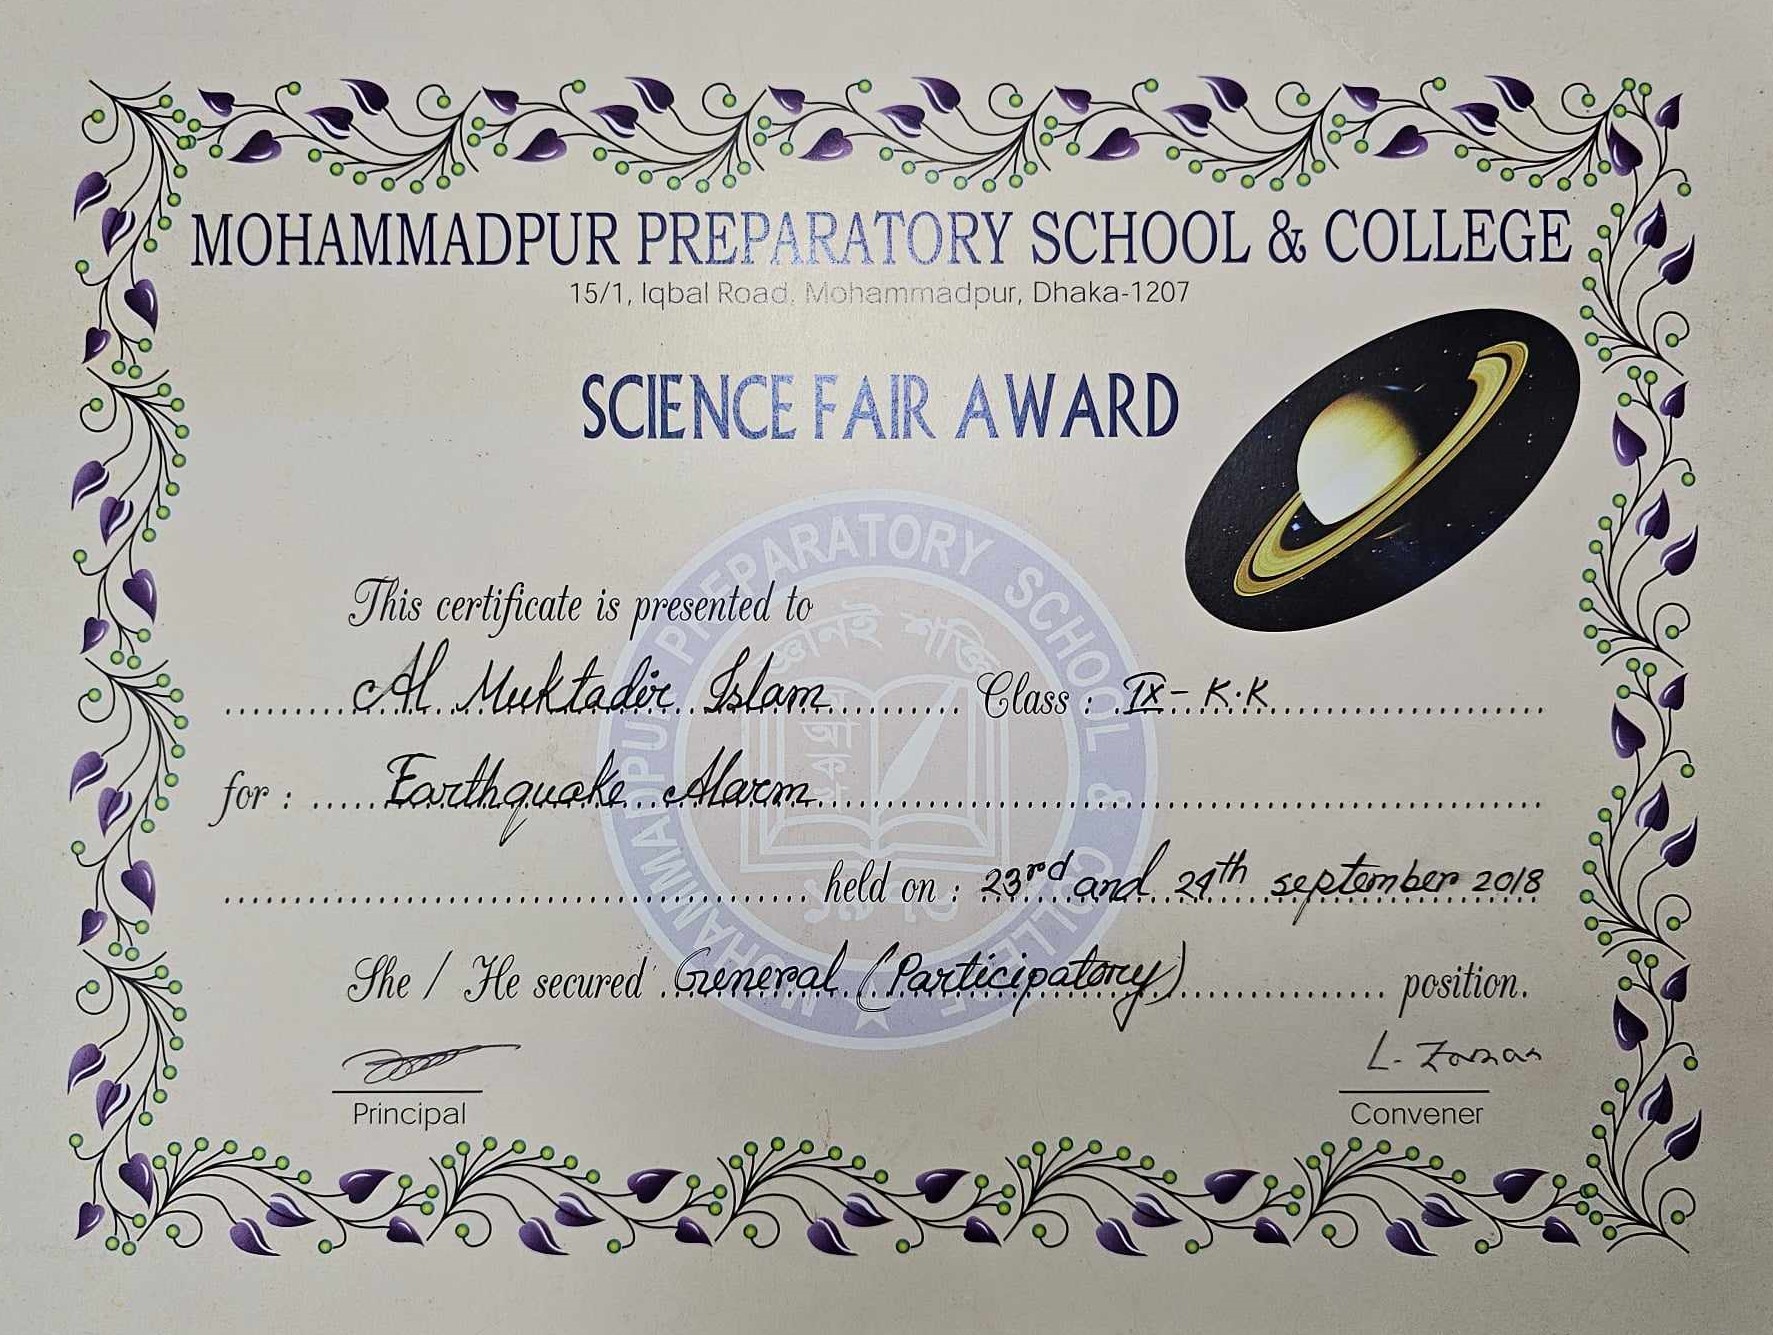 MOHAMMADPUR PREPARATORY SCHOOL & COLLEGE
15/1, Iqbal Road, Mohammadpur, Dhaka-1207
SCIENCE FAIR AWARD
MOHAMMADPUR PREPARATORY SCHOOL & COLLEGE
জ্ঞানই শক্তি
This certificate is presented to
Al Muktadir Islam Class : IX- K.K
for : Earthquake Alarm
held on : 23rd and 24th september 2018
She / He secured General (Participatory) position.
L. Zaman
Principal Convener